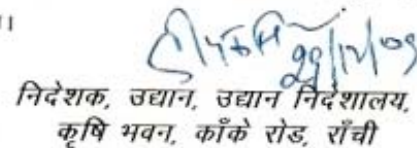 ।
निदेशक, उद्यान, उद्यान निदेशालय,
कृषि भवन, काँके रोड, राँची